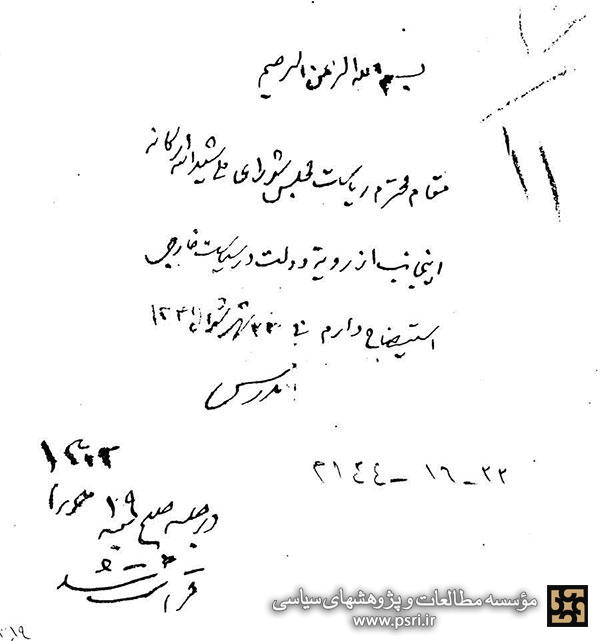 بسم الله الرحمن الرحیم
۱۱
مقام محترم ریاست مجلس شورای ملی شیدالله ارکانه
اینجانب از رویهٔ دولت در سیاست خارجی
استیضاح دارم فی ۲۳ شهر شوال ۱۳۴۱
مدرس
۳۱۴۴ - ۱۶ - ۲۲
در جلسه صبح شنبه ۱۹
قرائت شد
مؤسسه مطالعات و پژوهشهای سیاسی
www.psri.ir